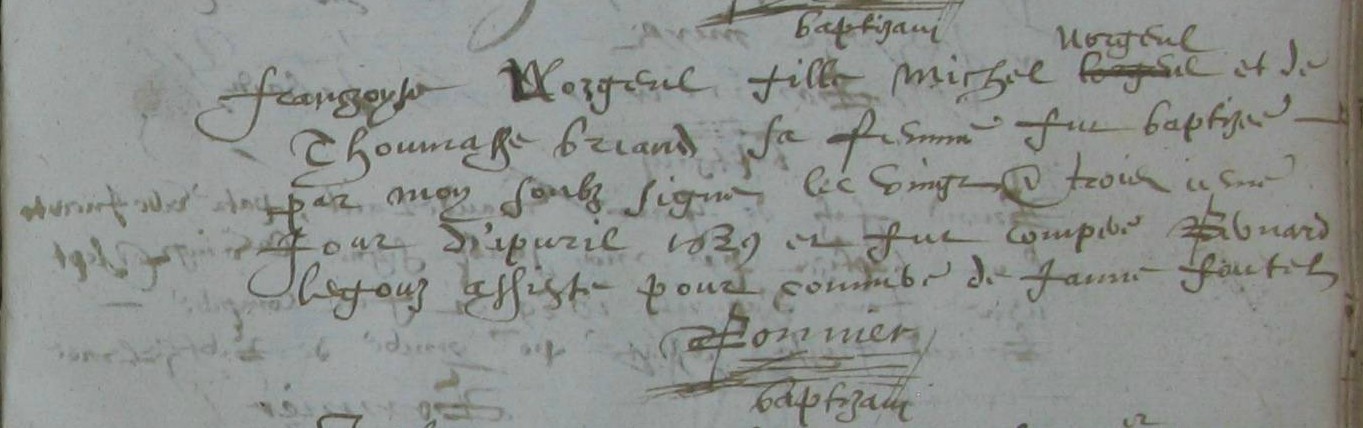 baptizavi
Norgeul
Franczoyse Norgeul fille Michel et de
Thoumasse briand sa femme fut baptizee
par moy soubz signe les vingt & troisiesme
Jour d'apvril 1629 et fut compere
legouz assiste pour commere de Janne
baptizavi